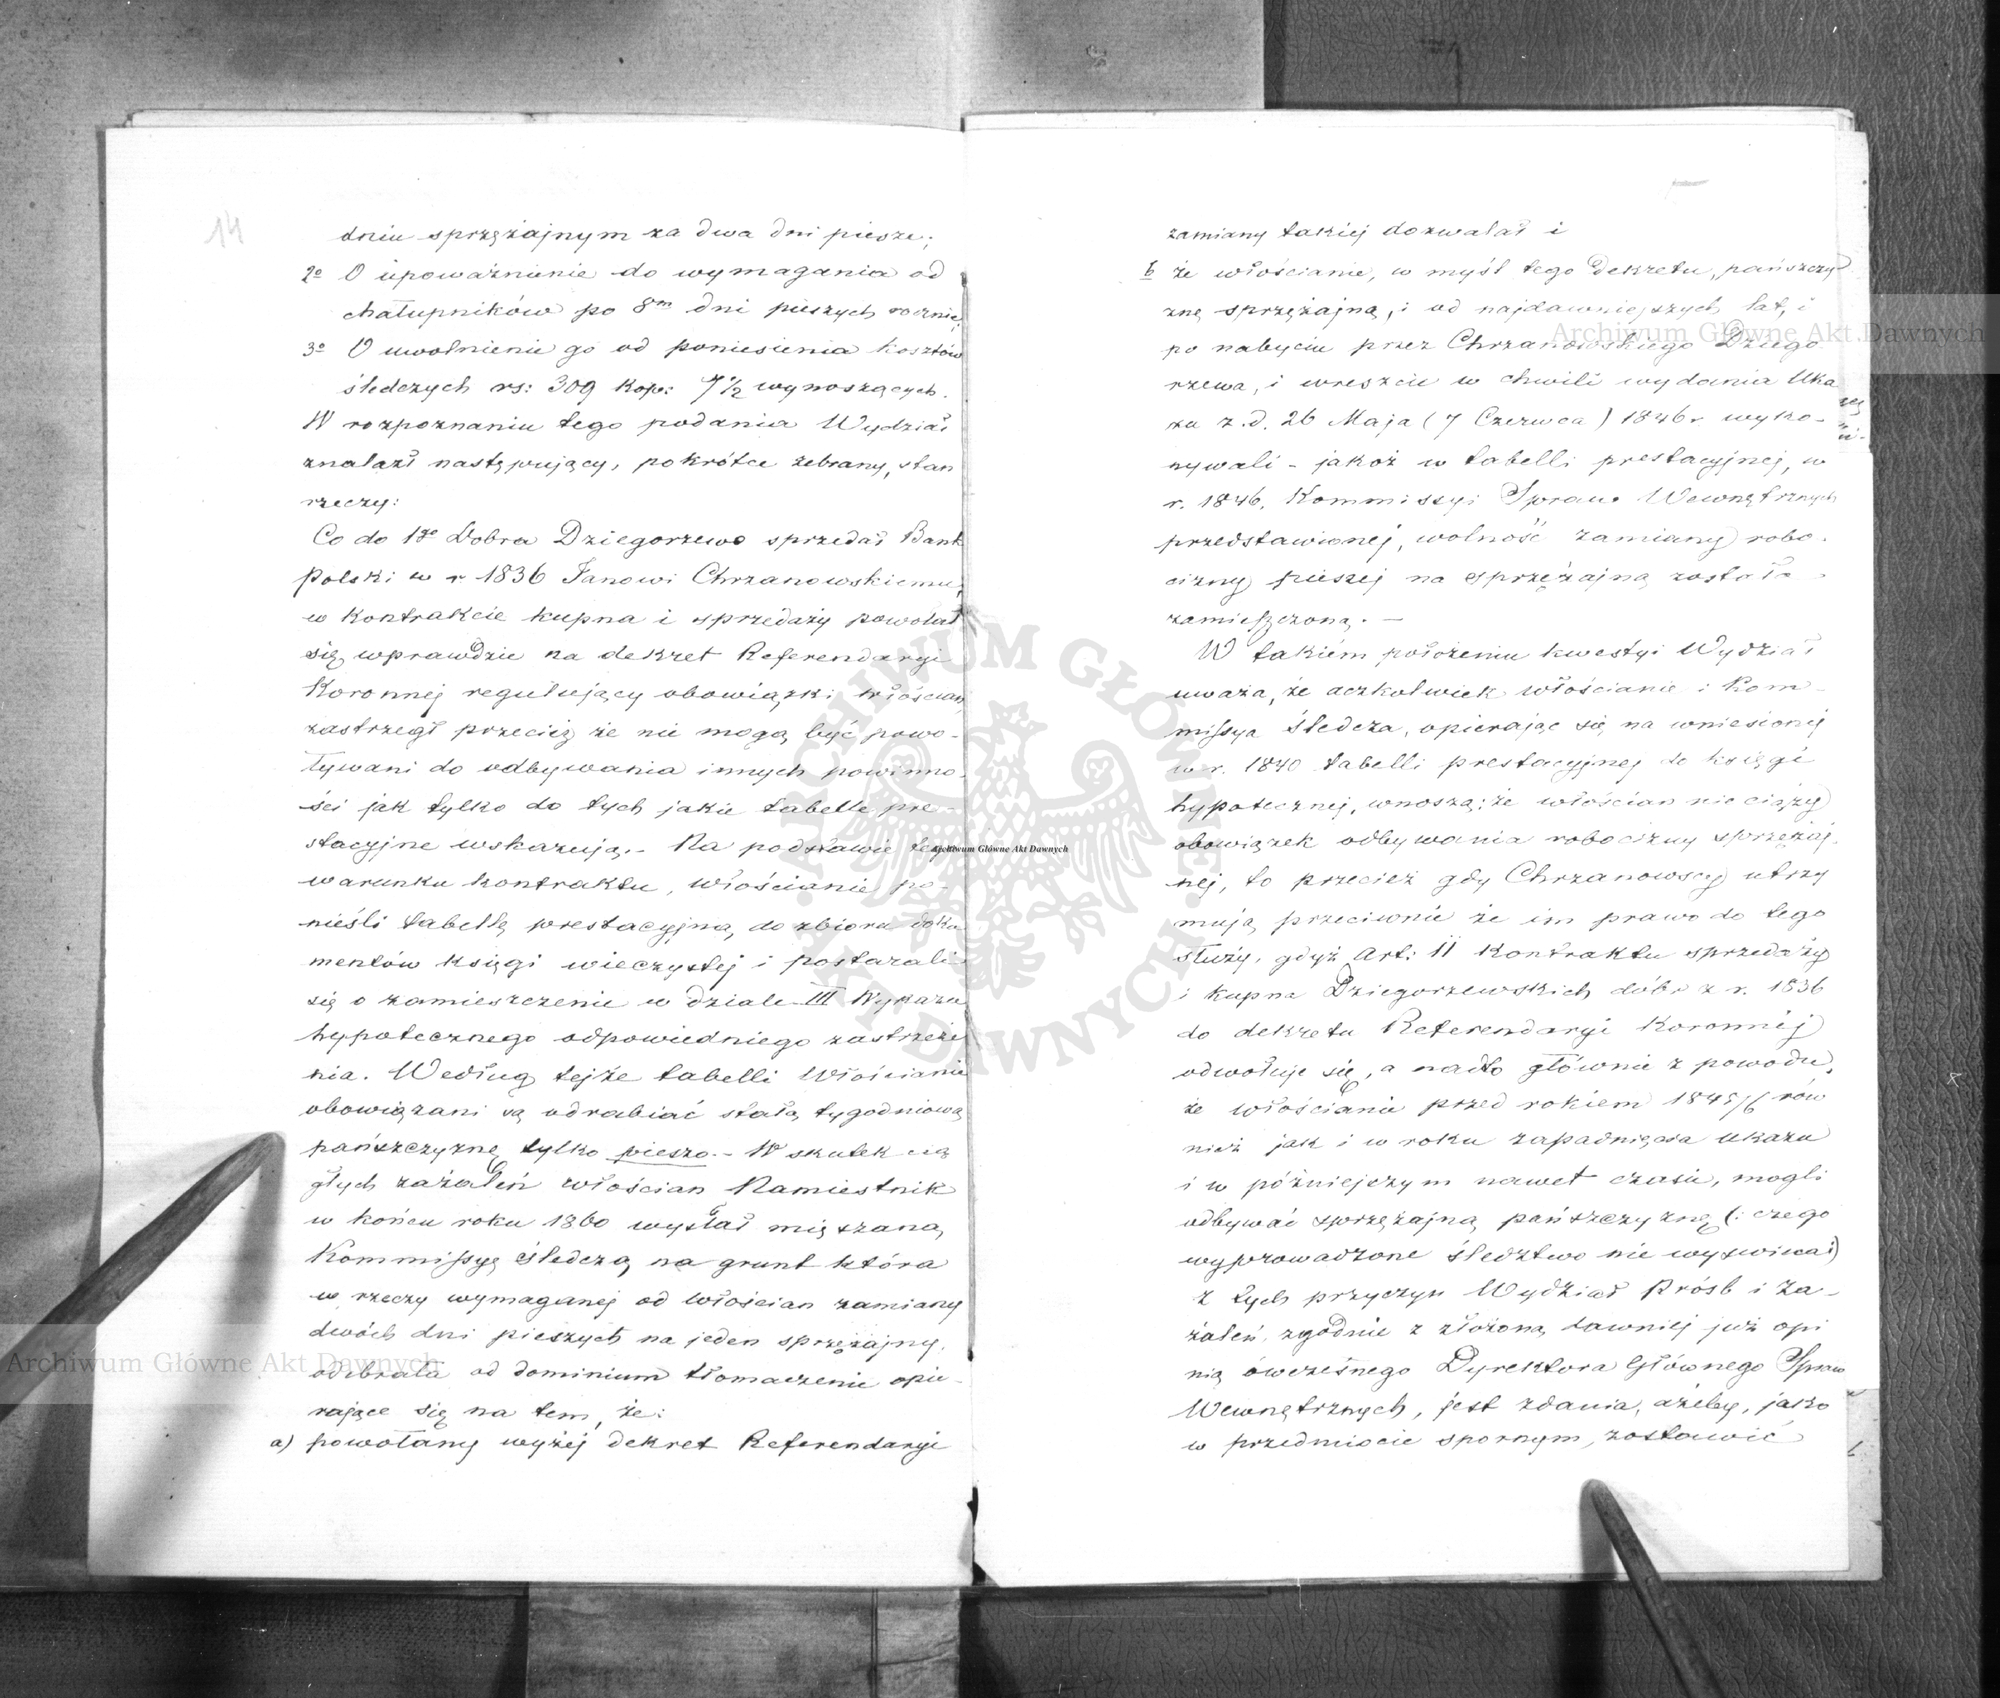 14
dniu sprzężajnym za dwa dni piesze;
2o O upoważnienie do wymagania od
chałupników po 8m dni pieszych rocznie;
3o O uwolnienie go od poniesienia kosztów
śledczych rs: 309 kop: 7 1/2 wynoszących.
W rozpoznaniu tego podania Wydział
znalazł następujący, pokrótce zebrany, stan
rzeczy:
Co do 1go Dobra Dziegorzewo sprzedał Bank
Polski w r 1836 Janowi Chrzanowskiemu,
w kontrakcie kupna i sprzedaży powołał
się wprawdzie na dekret Referendaryi
Koronnej regulujący obowiązki włościan,
zastrzegł przecież że nie mogą być powo-
ływani do odbywania innych powinno-
ści jak tylko do tych jakie tabelle pre-
stacyjne wskazują. - Na podstawie tego
warunku kontraktu, włościanie po-
nieśli tabellę prestacyjną, do zbioru doku
mentów księgi wieczystej i postarali
się o zamieszczenie w dziale III Wykazu
hypotecznego odpowiedniego zastrzeże
nia. Według tejże tabelli Włościanie
obowiązani są odrabiać stałą tygodniową
pańszczyznę tylko pieszo. - W skutek cią
głych zażaleń włościan Namiestnik
w końcu roku 1860 wysłał mięszaną
Kommissyę śledczą na grunt która
w rzeczy wymaganej od włościan zamiany
dwóch dni pieszych na jeden sprzężajny,
odebrała od dominium tłomaczenie opie-
rające się na tem, że:
a) powołany wyżej dekret Referendaryi
zamiany takiej dozwalał i
b że włościanie, w myśl tego dekretu, pańszczy
znę sprzężajną, i od najdawniejszych lat, i
po nabyciu przez Chrzanowskiego Dziego
rzewa, i wreszcie w chwili wydania Uka
zu z.d. 26 Maja (7 Czerwca) 1846 r. wyko-
nywali - jakoż w tabelli prestacyjnej, w
r. 1846. Kommissyi Spraw Wewnętrznych
przedstawionej, wolność zamiany robo-
cizny pieszej na sprzężajną została
zamieszczoną. -
W takiém położeniu kwestyi Wydział
uważa, że aczkolwiek włościanie i Kom-
missya śledcza, opierając się na wniesionej
w r. 1840 tabelli prestacyjnej do księgi
hypotecznej, wnoszą; że włościan nie ciąży
obowiązek odbywania robocizny sprzężaj-
nej, to przecież gdy Chrzanowscy utrzy
mują przeciwnie że im prawo do tego
służy, gdyż Art: 11 Kontraktu sprzedaży
i kupna Dziegorzewskich dóbr z r. 1836
do dekretu Referendaryi Koronnej
odwołuje się, a nadto głównie z powodu,
że włościanie przed rokiem 1845/6 rów
nież jak i w roku zapadnięcia ukazu
i w późniejszym nawet czasie, mogli
odbywać sprzężajną pańszczyznę (: czego
wyprowadzone śledztwo nie wyświeca:)
z tych przyczyn Wydział Próśb i Za-
żaleń, zgodnie z złożoną dawniej już opi
nią ówcześnego Dyrektora Głównego Spraw
Wewnętrznych, jest zdania, ażeby, jako
w przedmiocie spornym, zostawić
Archiwum Główne Akt Dawnych
Archiwum Główne Akt Dawnych
Archiwum Główne Akt Dawnych
ARCHIWUM GŁÓWNE AKT DAWNYCH